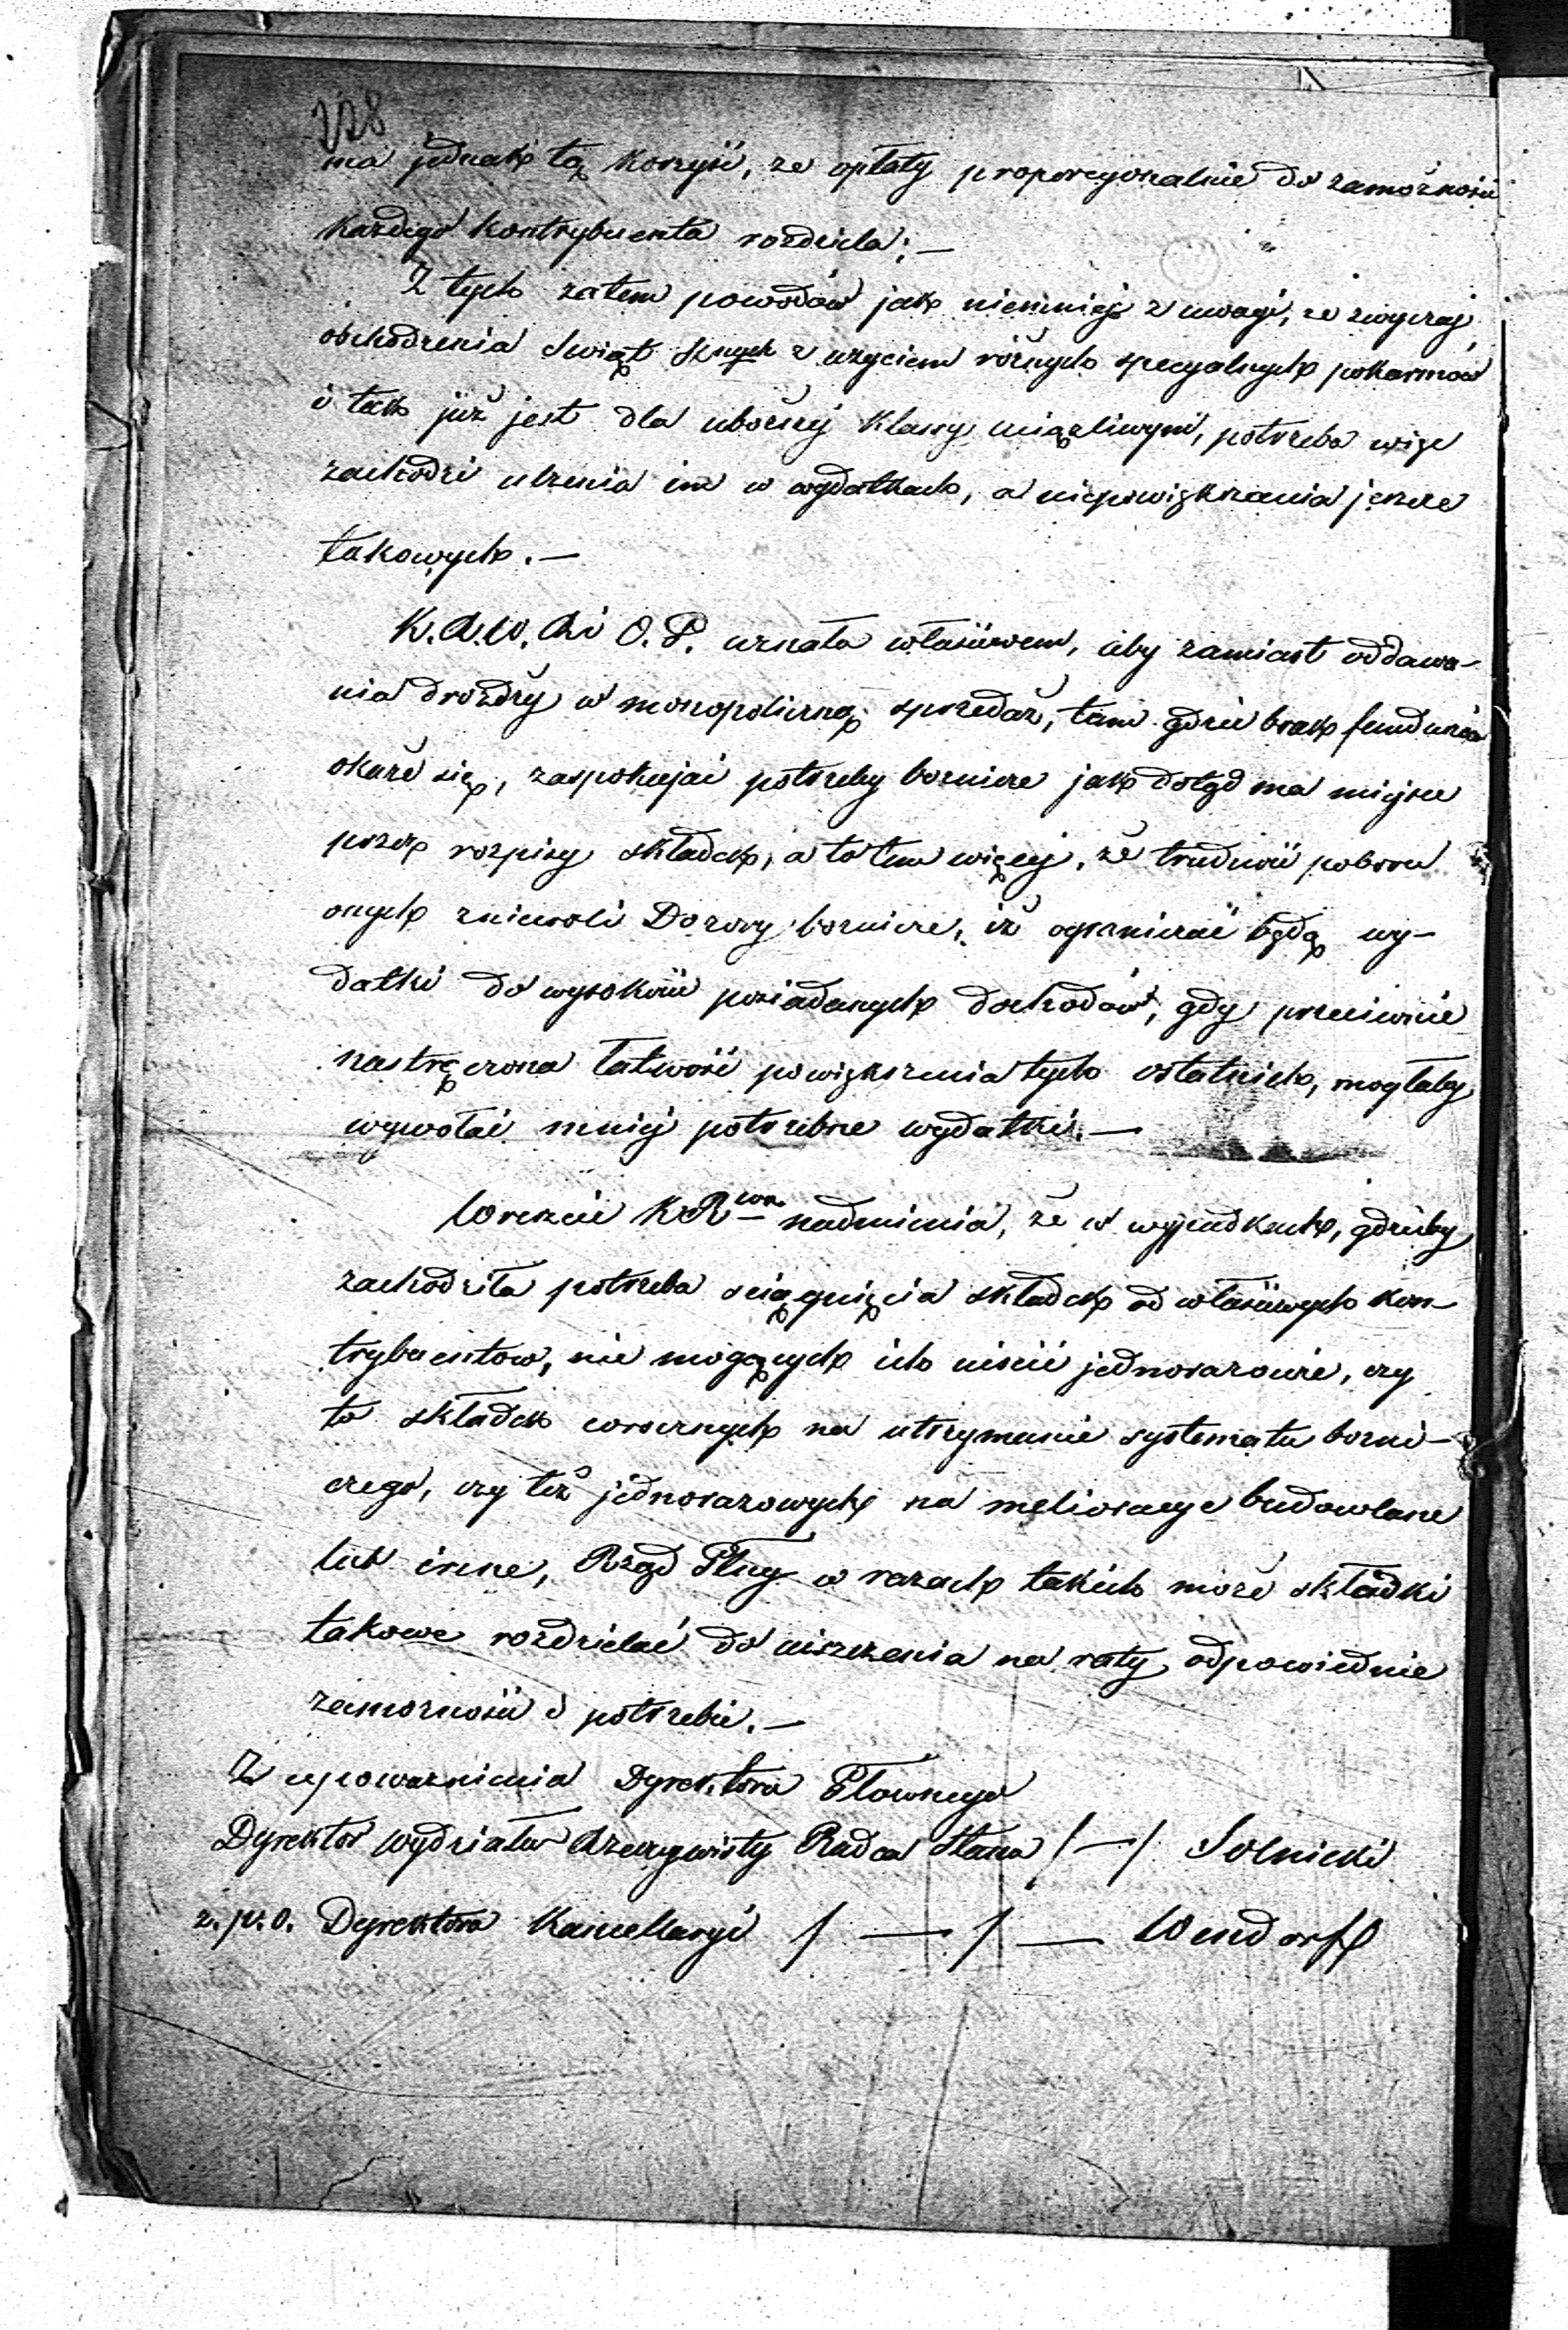 228
ma jednak tą korzyść, że opłaty proporcyonalnie do zamożności
każdego kontrybuenta rozdziela; —
Z tych zatem powodów jak niemniej z uwagi, że zwyczaj
obchodzenia Swiąt z użyciem różnych specyalnych pokarmów
i tak już jest dla uboższej klassy uciążliwym, potrzeba więc
zachodzi ulżenia im w wydatkach, a niepowiększania jeszcze
takowych. —
K. R. W. R i O. P. uznała właściwem, aby zamiast oddawa-
nia drożdży w monopoliczną sprzedaż, tam gdzie brak funduszów
okaże się, zaspokajać potrzeby boznicze jak dotąd ma miejsce
przez rozpisy składek, a to tem więcej, że trudność poboru
onych zniewoli Dozory boznicze, iż ograniczać będą wy-
datki do wysokości posiadanych dochodów, gdy przeciwnie
nastręczona łatwość powiększenia tych ostatnich, mogłaby
wywołać mniej potrzebne wydatki. —
Wreszcie KR nadmienia, że w wypadkach, gdzieby
zachodziła potrzeba sciągnięcia składek od właściwych kon-
trybuentow, nie mogących ich uiscić jednorazowie, czy
to składek corocznych na utrzymanie systematu bozni-
czego, czy też jednorazowych na melioracye budowlane
lub inne, Rząd Gbny w razach takich może składki
takowe rozdzielać do uiszczenia na raty, odpowiednie
zamozności i potrzebie. —
Z upoważnienia Dyrektora Głownego
Dyrektor Wydziału Rzeczywisty Radca Stanu /—/ Solnicki
z. p. o. Dyrektora Kancellaryi / — / — Wendorff